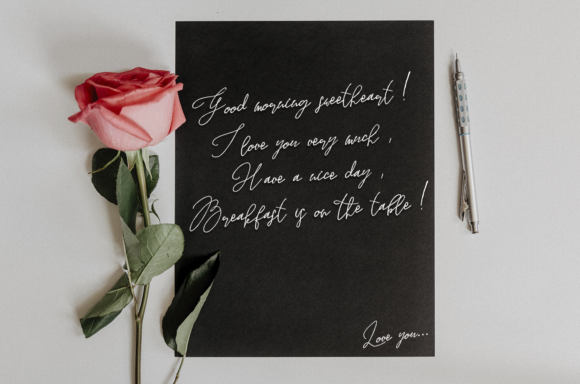 Good morning sweetheart!
I love you very much,
Have a nice day,
Breakfast is on the table!
Love you...